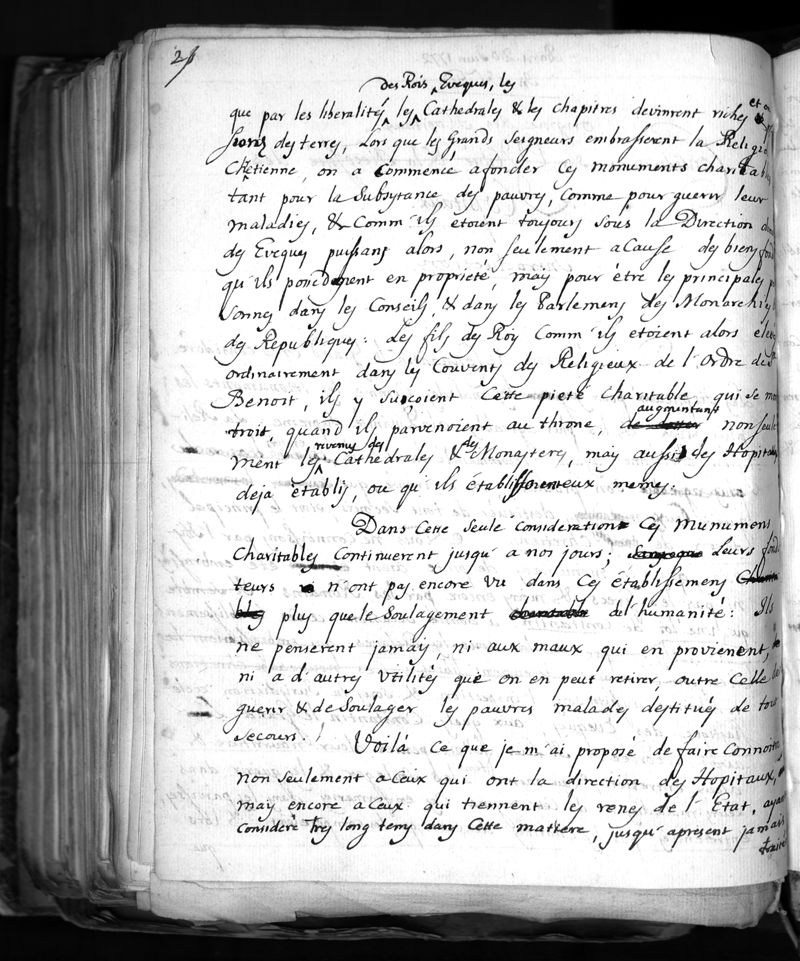 des Rois, Eveques, les
que par les liberalités les Cathedrales & les chapitres devinrent riches et
des terres, Lors que les Grands Seigneurs embrasserent la Religi
Chrétienne, on a Commencé afonder Ces monuments charitab
tant pour la Subsystance des pauvres, Comme pour guerir leur
maladies, & Comm' ils etoient toujours sous la Direction
des Eveques puissans alors, non seulement acause des biens fond
qu'ils en proprieté, mais pour être les principales
sonnes dans les Conseils, & dans les Parlemens des Monarchies
des Republiques: Les fils des Roy Comm' ils etoient alors eleve
ordinairement dans les Couvents des Religieux de l'Ordre de St
Benoit, ils y suçoient Cette pieté charitable, qui se mon
augmentant
troit, quand ils parvenoient au throne, non seule
revenus des des
ment les Cathedrales & Monasteres, mais aussi des Hopitau
deja établis, ou qu'ils établissoient eux memes.
Dans Cette seule Consideration Ces Munumens
Charitables Continuerent jusqu' a nos jours; Leurs fond
teurs n'ont pas encore vu dans Ces établissemens
plus que le Soulagement de l'humanité: Ils
ne penserent jamais, ni aux maux qui en provienent,
ni a d'autres Utilités que on en peut retirer, outre Celle de
guerir & de Soulager les pauvres malades destitués de tout
secours.! Voilà ce que je m'ai proposé de faire Connoitre
non seulement a Ceix qui ont la direction des Hopitaux,
mais encore a Ceux qui tiennent les renes de l'Etat, ayant
Consideré tres long tems dans Cette matiere, jusqu' apresent jamais
traité